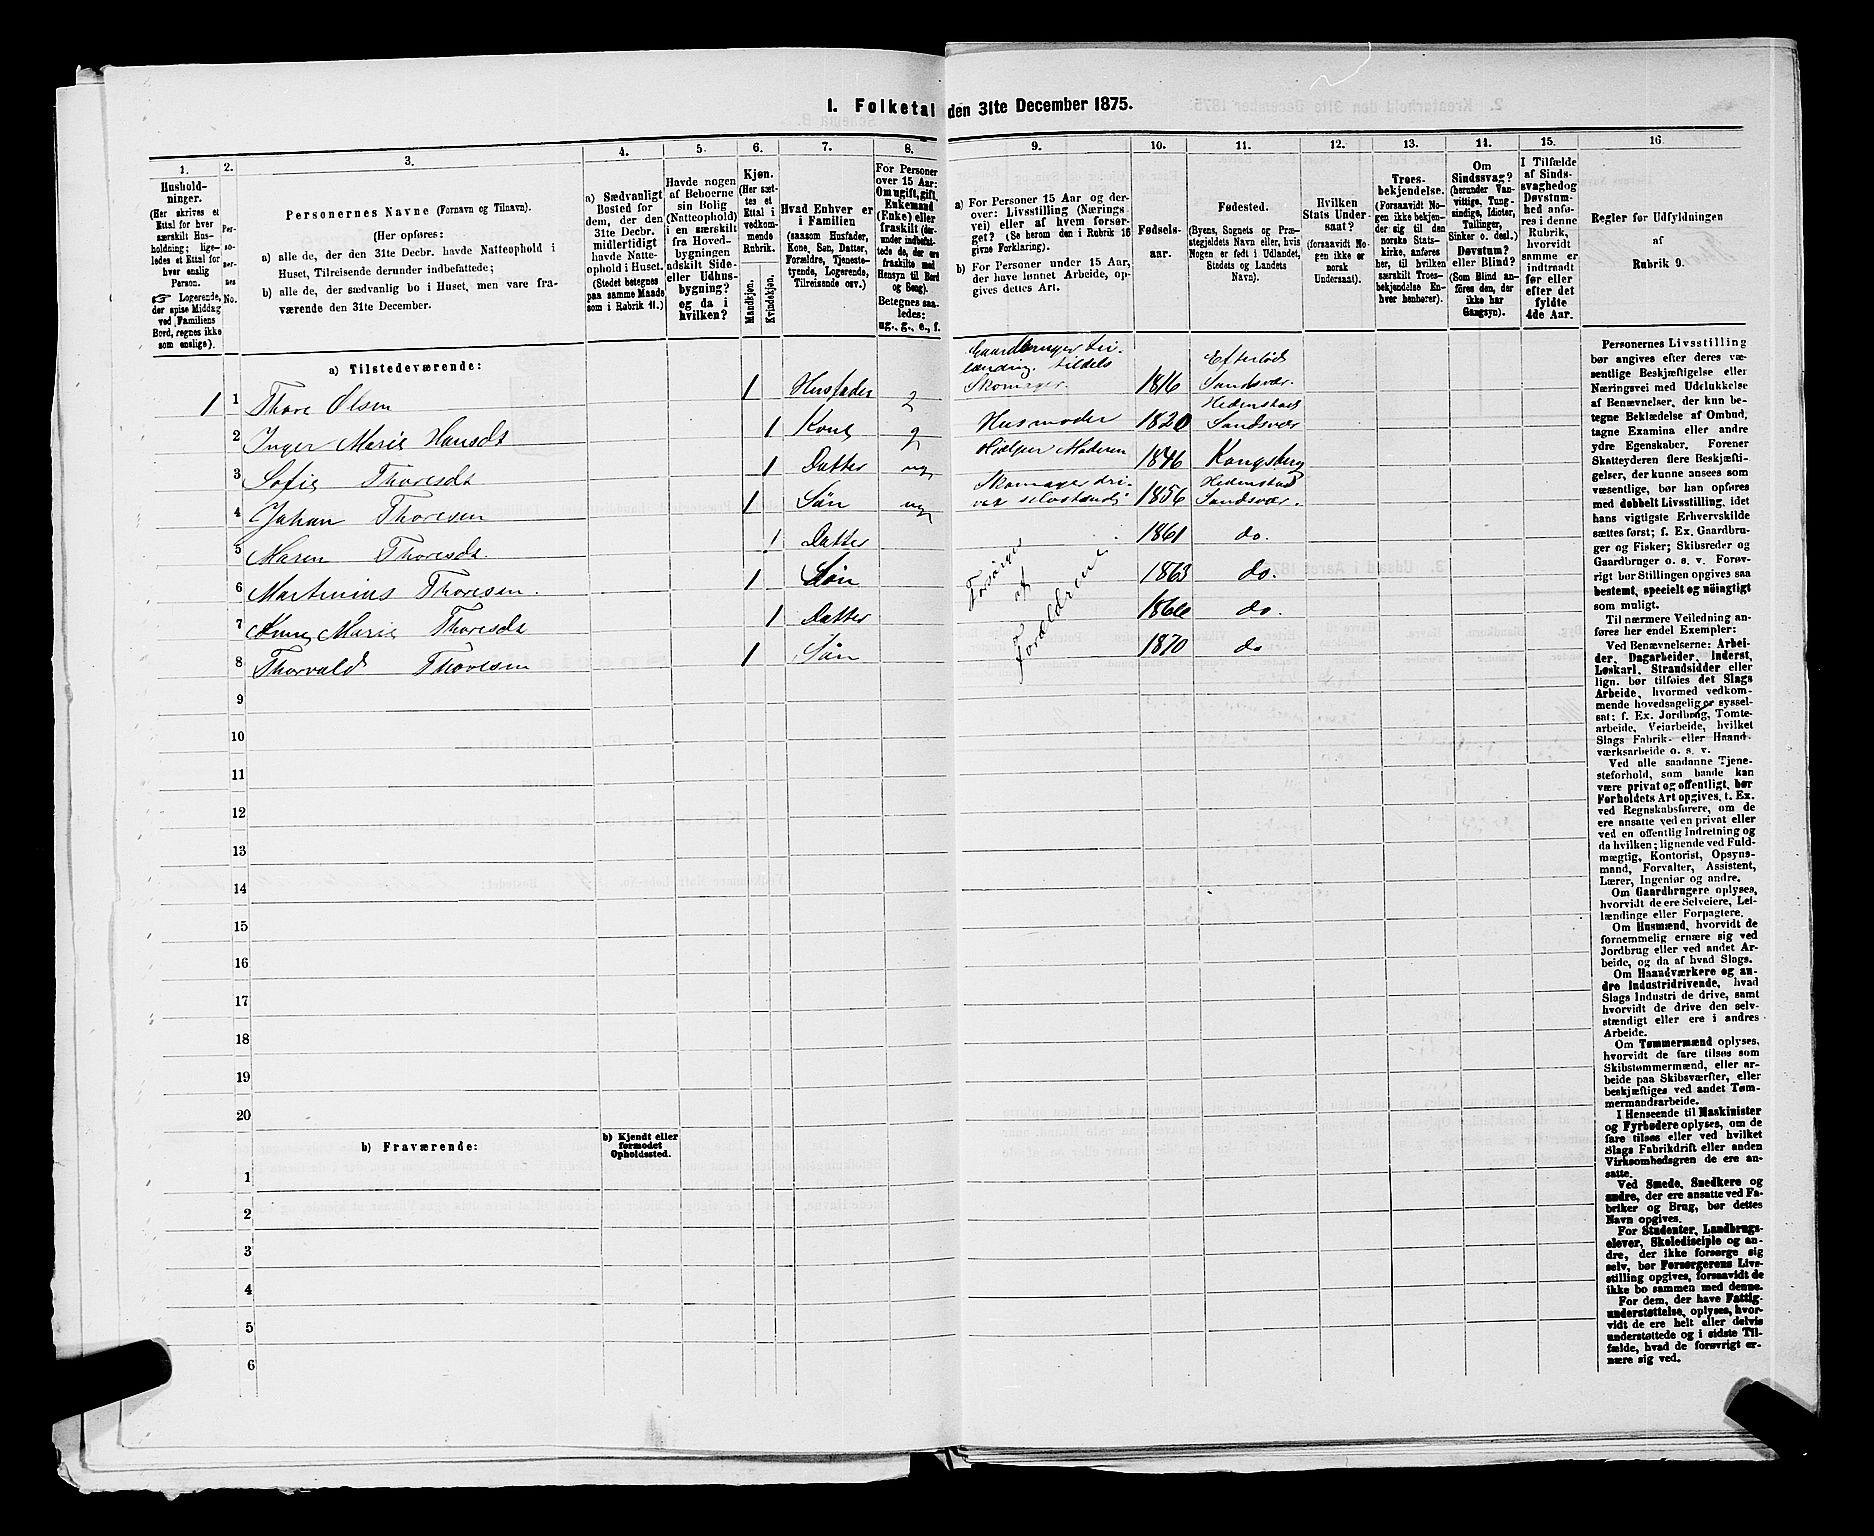 1. Folketal den 31te December 1875.
1.
Hushold-
ninger.
(Her skrives et
Ettal for hver
særskilt Hus-
holdning; lige-
ledes et Ettal for
hver enslig
Person.
☞ Logerende,
der spise Middag
ved Familiens
Bord, regnes ikke
som enslige).
2.
Per-
so-
ner-
nes
No.
3.
Personernes Navne (Fornavn og Tilnavn).
(Her opføres:
a) alle de, der den 31te Decbr. havde Natteophold i
Huset, Tilreisende derunder indbefattede;
b) alle de, der sædvanlig bo i Huset, men vare fra-
værende den 31te December.
4.
a) Sædvanligt
Bosted for
dem, der den
31te Decbr.
midlertidigt
havde Natte-
ophold i Huset.
(Stedet betegnes
paa samme Maade
som i Rubrik 11.)
5.
Havde nogen
af Beboerne
sin Bolig
(Natteophold)
i en særskilt
fra Hoved-
bygningen
adskilt Side-
eller Udhus-
bygning?
og da i
hvilken?
6.
Kjøn.
(Her sæt-
tes et
Ettal i
vedkom-
mende
Rubrik.
Mandkjøn.
Kvindekjøn.
7.
Hvad Enhver er
i Familien
(saasom Husfader,
Kone, Søn, Datter,
Forældre, Tjeneste-
tyende, Logerende,
Tilreisende osv.)
8.
For Personer
over 15 Aar:
Om ugift, gift,
Enkemand
(Enke) eller
fraskilt (der-
under indbefat-
tede de, der ere
fraskilte med
Hensyn til Bord
og Seng).
Betegnes saa-
ledes:
ug., g., e., f.
9.
a) For Personer 15 Aar og der-
over: Livsstilling (Nærings-
vei) eller af hvem forsør-
get? (Se herom den i Rubrik 16
givne Forklaring).
b) For Personer under 15 Aar,
der have lønnet Arbeide, op-
gives dettes Art.
10.
Fødsels-
aar.
11.
Fødested.
(Byens, Sognets og Præ-
stegjeldets Navn eller, hvis
Nogen er født i Udlandet,
Stedets og Landets
Navn).
12.
Hvilken
Stats Under-
saat?
(forsaavidt No-
gen ikke er
norsk
Undersaat).
13.
Troes-
bekjendelse.
(Forsaavidt No-
gen ikke bekjen-
der sig til den
norske Stats-
kirke, anføres
her, til hvilken
særskilt Troes-
bekjendelse En-
hver henhører).
14.
Om
Sindssvag?
(herunder Van-
vittige, Tung-
sindige, Idioter,
Tullinger,
Sinker o. desl.)
Døvstum?
eller Blind?
(Som Blind an-
føres den, der
ikke har
Gangsyn).
15.
I Tilfælde
af Sinds-
svaghed og
Døvstum-
hed anfø-
res i denne
Rubrik,
hvorvidt
samme er
indtraadt
før eller
efter det
fyldte
4de Aar.
16.
Regler for Udfyldningen
af
Rubrik 9.
a) Tilstedeværende:
1 1 Thore Olsen 1 Husfader g Gaardbruger Lei-
lænding. tildels
Skomager. 1816 Efteløds
Sandsvær.
2 Inger Marie Hansdt 1 Kone g Husmoder 1820 Hedenstad
Sandsvær
3 Sofie Thoresdt 1 Datter ug Hjælper Moderen 1846 Kongsberg
4 Johan Thoresen 1 Søn ug Skomager dri-
ver selvstændi 1856 Hedenstad
Sandsvær.
5 Maren Thoresdt. 1 Datter 1861 do.
6 Martinius Thoresen. 1 Søn 1863 do.
7 Anne Marie Thoresdt 1 Datter 1866 do.
8 Thorvald Thoresen 1 Søn 1870 do
Forsørges
af
Forældrene
9
10
11
12
13
14
15
16
17
18
19
20
b) Fraværende:
b) Kjendt eller
formodet
Opholdssted.
1
2
3
4
5
6
Personernes Livsstilling
bør angives efter deres væ-
sentlige Beskjæftigelse eller
Næringsvei med Udelukkelse
af Benævnelser, der kun be-
tegne Beklædelse af Ombud,
tagne Examina eller andre
ydre Egenskaber. Forener
Skatteyderen flere Beskjæfti-
gelser, der kunne ansees som
væsentlige, bør han opføres
med dobbelt Livsstilling, idet
hans vigtigste Erhvervskilde
sættes først; f. Ex. Gaardbru-
ger og Fisker; Skibsreder og
Gaardbruger o. s. v. Forøv-
rigt bør Stillingen opgives saa
bestemt, specielt og nøiagtigt
som muligt.
Til nærmere Veiledning an-
føres her endel Exempler:
Ved Benævnelserne: Arbei-
der, Dagarbeider, Inderst,
Løskarl, Strandsidder eller
lign. bør tilføies det Slags
Arbeide, hvormed vedkom-
mende hovedsagelig er syssel-
sat; f. Ex. Jordbrug, Tomte-
arbeide, Veiarbeide, hvilket
Slags Fabrik- eller Haand-
værksarbeide o. s. v.
Ved alle saadanne Tjene-
steforhold, som baade kan
være privat og offentligt, bør
Forholdets Art opgives, t. Ex.
ved Regnskabsførere, om de
ere ansatte ved en privat eller
ved en offentlig Indretning og
da hvilken; lignende ved Fuld-
mægtig, Kontorist, Opsyns-
mand, Forvalter, Assistent,
Lærer, Ingeniør og andre.
Om Gaardbrugere oplyses,
hvorvidt de ere Selveiere, Lei-
lændinge eller Forpagtere.
Om Husmænd, hvorvidt de
fornemmelig ernære sig ved
Jordbrug eller ved andet Ar-
beide, og da af hvad Slags.
Om Haandværkere og an-
dre Industridrivende, hvad
Slags Industri de drive, samt
hvorvidt de drive den selv-
stændigt eller ere i andres
Arbeide.
Om Tømmermænd oplyses,
hvorvidt de fare tilsøs som
Skibstømmermænd, eller ar-
beide paa Skibsværfter, eller
beskjæftiges ved andet Tøm-
mermandsarbeide.
I Henseende til Maskinister
og Fyrbødere oplyses, om de
fare tilsøs eller ved hvilket
Slags Fabrikdrift eller anden
Virksomhedsgren de ere an-
satte.
Ved Smede, Snedkere og
andre, der ere ansatte ved Fa-
briker og Brug, bør dettes
Navn opgives.
For Studenter, Landbrugs-
elever, Skoledisciple og an-
dre, der ikke forsørge sig
selv, bør Forsørgerens Livs-
stilling opgives, forsaavidt de
ikke bo sammen med denne.
For dem, der have Fattig-
understøttelse, oplyses, hvor-
vidt de ere helt eller delvis
understøttede og i sidste Til-
fælde, hvad de forøvrigt er-
nære sig ved.